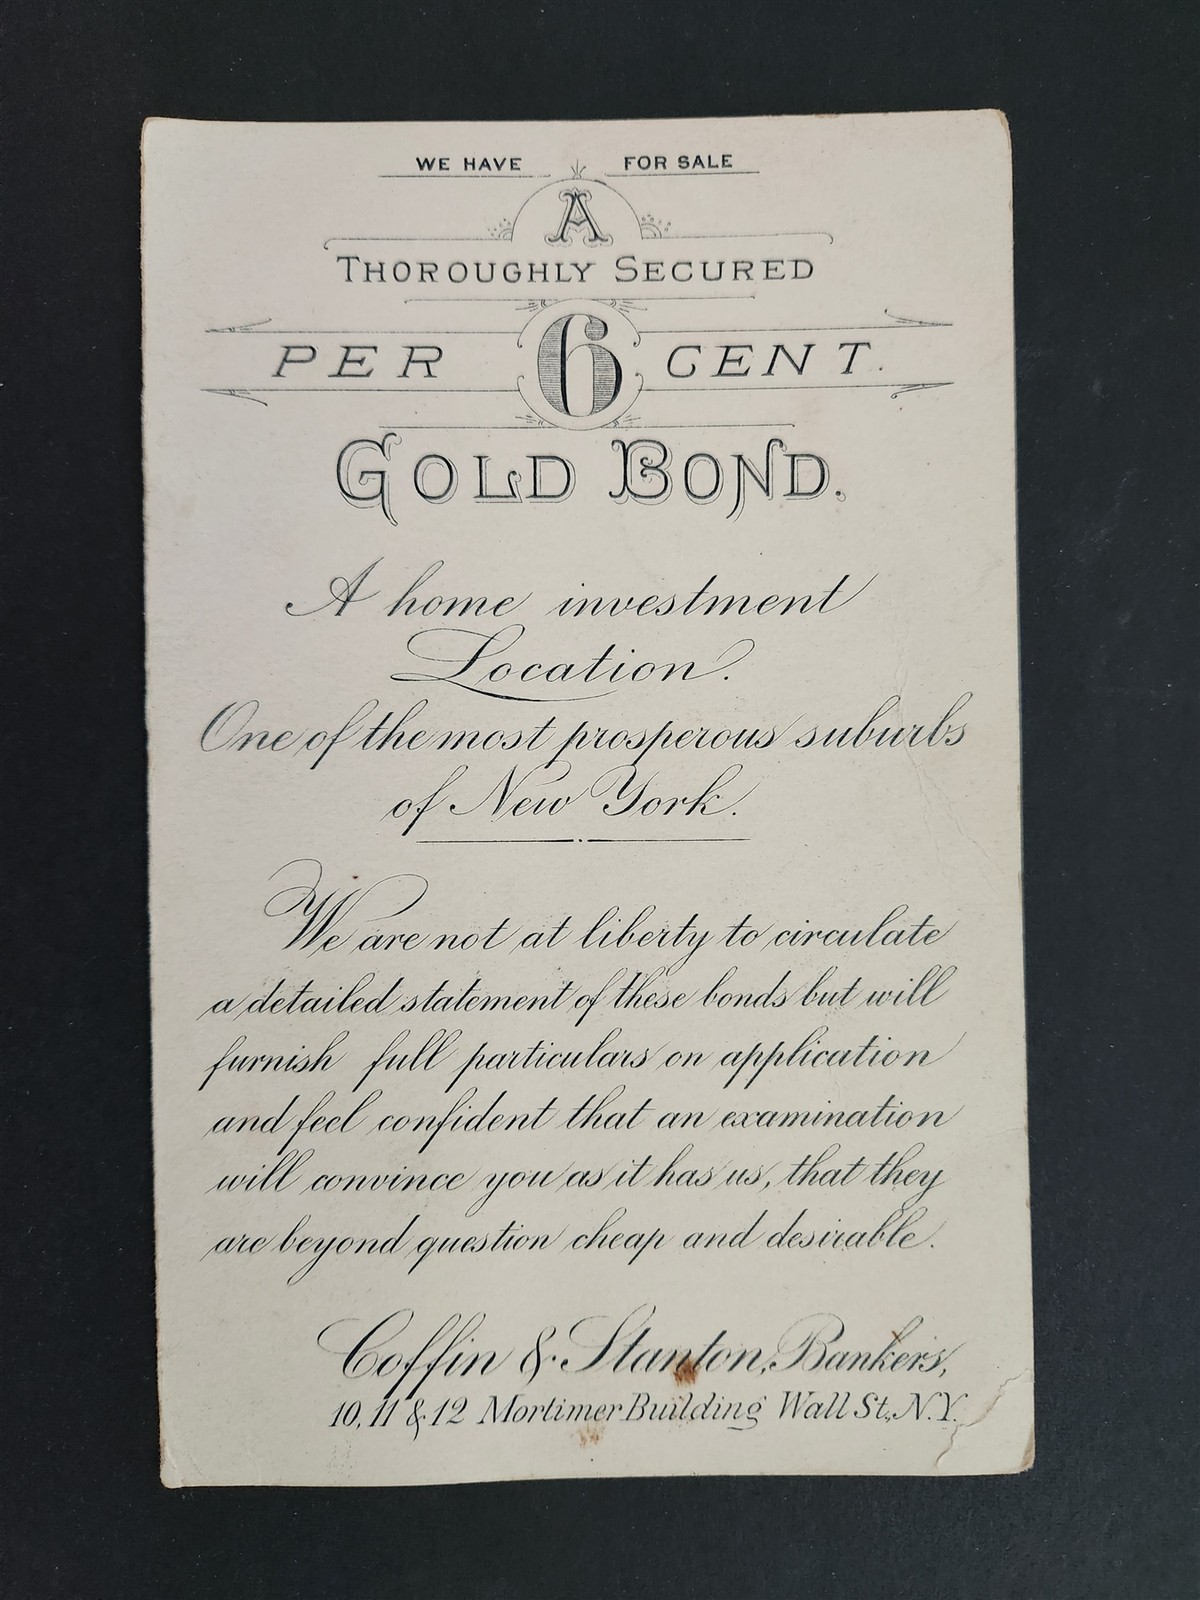 WE HAVE FOR SALE
A
THOROUGHLY SECURED
PER 6 CENT.
GOLD BOND.
A home investment
Location.
One of the most prosperous suburbs
of New York.
We are not at liberty to circulate
a detailed statement of these bonds but will
furnish full particulars on application
and feel confident that an examination
will convince you as it has us, that they
are beyond question cheap and desirable.
Coffin & Stanton, Bankers,
10, 11 & 12 Mortimer Building Wall St., N.Y.